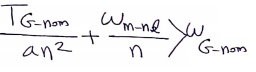 \frac{T_{G-nom}}{an^2} + \frac{\omega_{m-nl}}{n} > \omega_{G-nom}